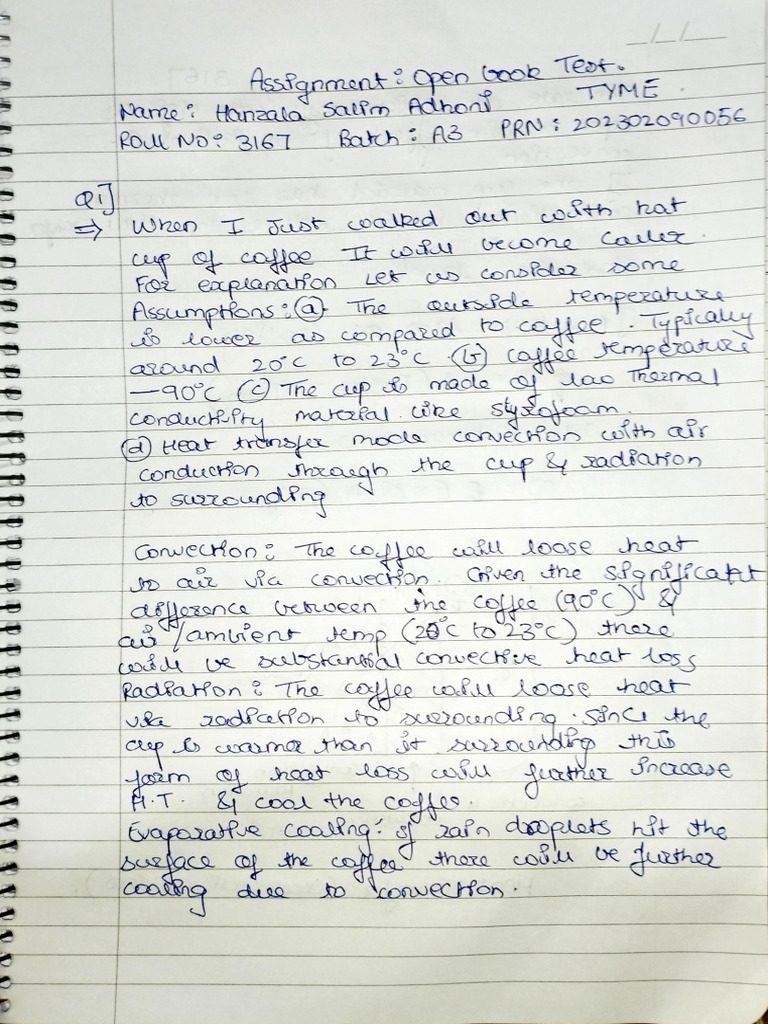 Assignment: Open Book Test.
Name: Hanzala Salim Adhoni TYME.
Roll No: 3167 Batch: A3 PRN: 202302090056
Q1]
⇒ When I Just walked out with hot
cup of coffee It will become cooler.
For explanation Let us consider some
Assumptions: (a) The outside temperature
is lower as compared to coffee. Typically
around 20°C to 23°C (b) coffee temperature
—90°C (c) The cup is made of low Thermal
conductivity material like styrofoam.
(d) Heat transfer mode convection with air
conduction through the cup & radiation
to surrounding
Convection: The coffee will loose heat
to air via convection. Given the significant
difference between the coffee (90°C) &
air / ambient temp (20°C to 23°C) there
will be substantial convective heat loss
Radiation: The coffee will loose heat
via radiation to surrounding. Since the
cup is warmer than it surrounding this
form of heat loss will further increase
H.T. & cool the coffee.
Evaporative cooling: if rain droplets hit the
surface of the coffee there will be further
cooling due to convection.